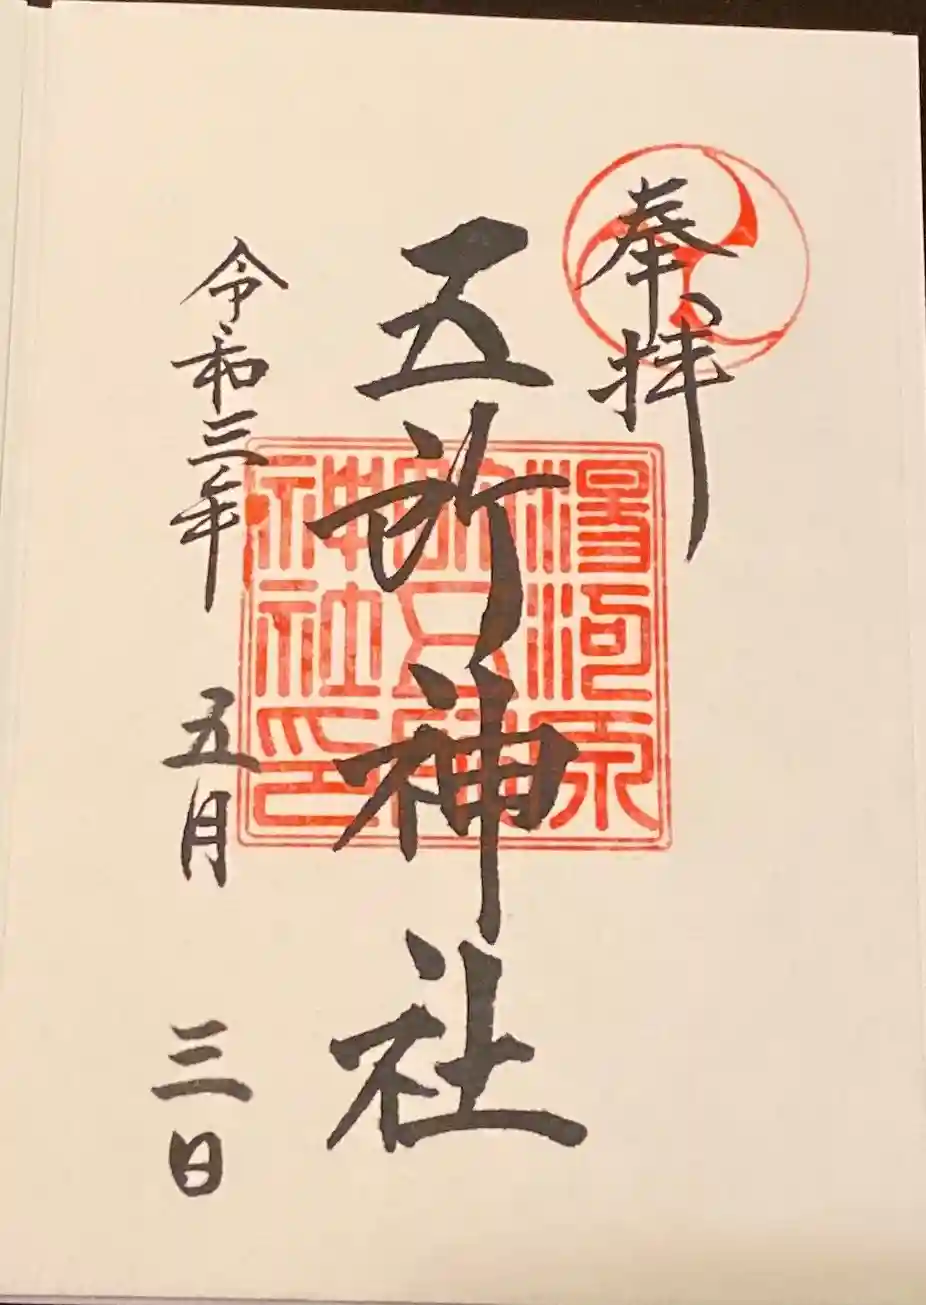 奉拝
五所神社
令和三年 五月 三日
湯河原
五所
神社印